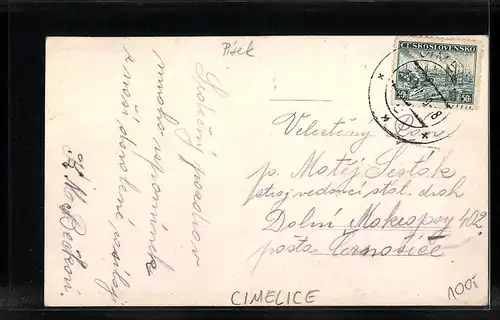 Písek
Srdečný pozdrav
mnoho vzpomínek
z naší dovolené zasílají
M. Bečkovi.
ČESKOSLOVENSKO
50h
Velectěný pan
p. Matěj Šesták
strojvedoucí stát. drah
Dolní Mokropsy 402
pošta Černošice.
CIMELICE
100,-